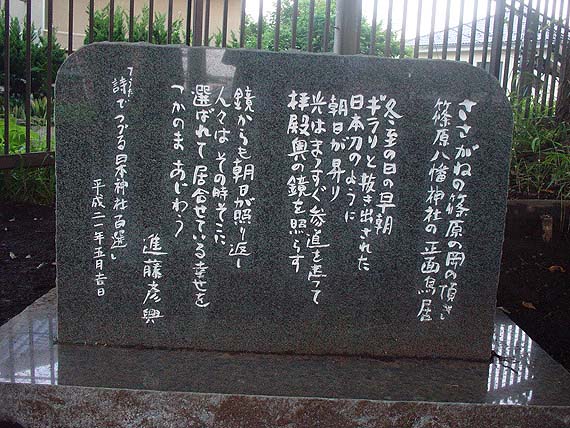 ささがねの篠原の岡の頂き
篠原八幡神社の正面鳥居
冬至の日の早朝
ギラリと抜き出された
日本刀のように
朝日が昇り
光はまっすぐ参道を走って
拝殿奥の鏡を照らす
鏡からも朝日が照り返し
人々はその時そこに
選ばれて居合せている幸せを
つかのまあじわう
進藤彦興
「詩でつづる日本神社百選」
平成二一年五月吉日